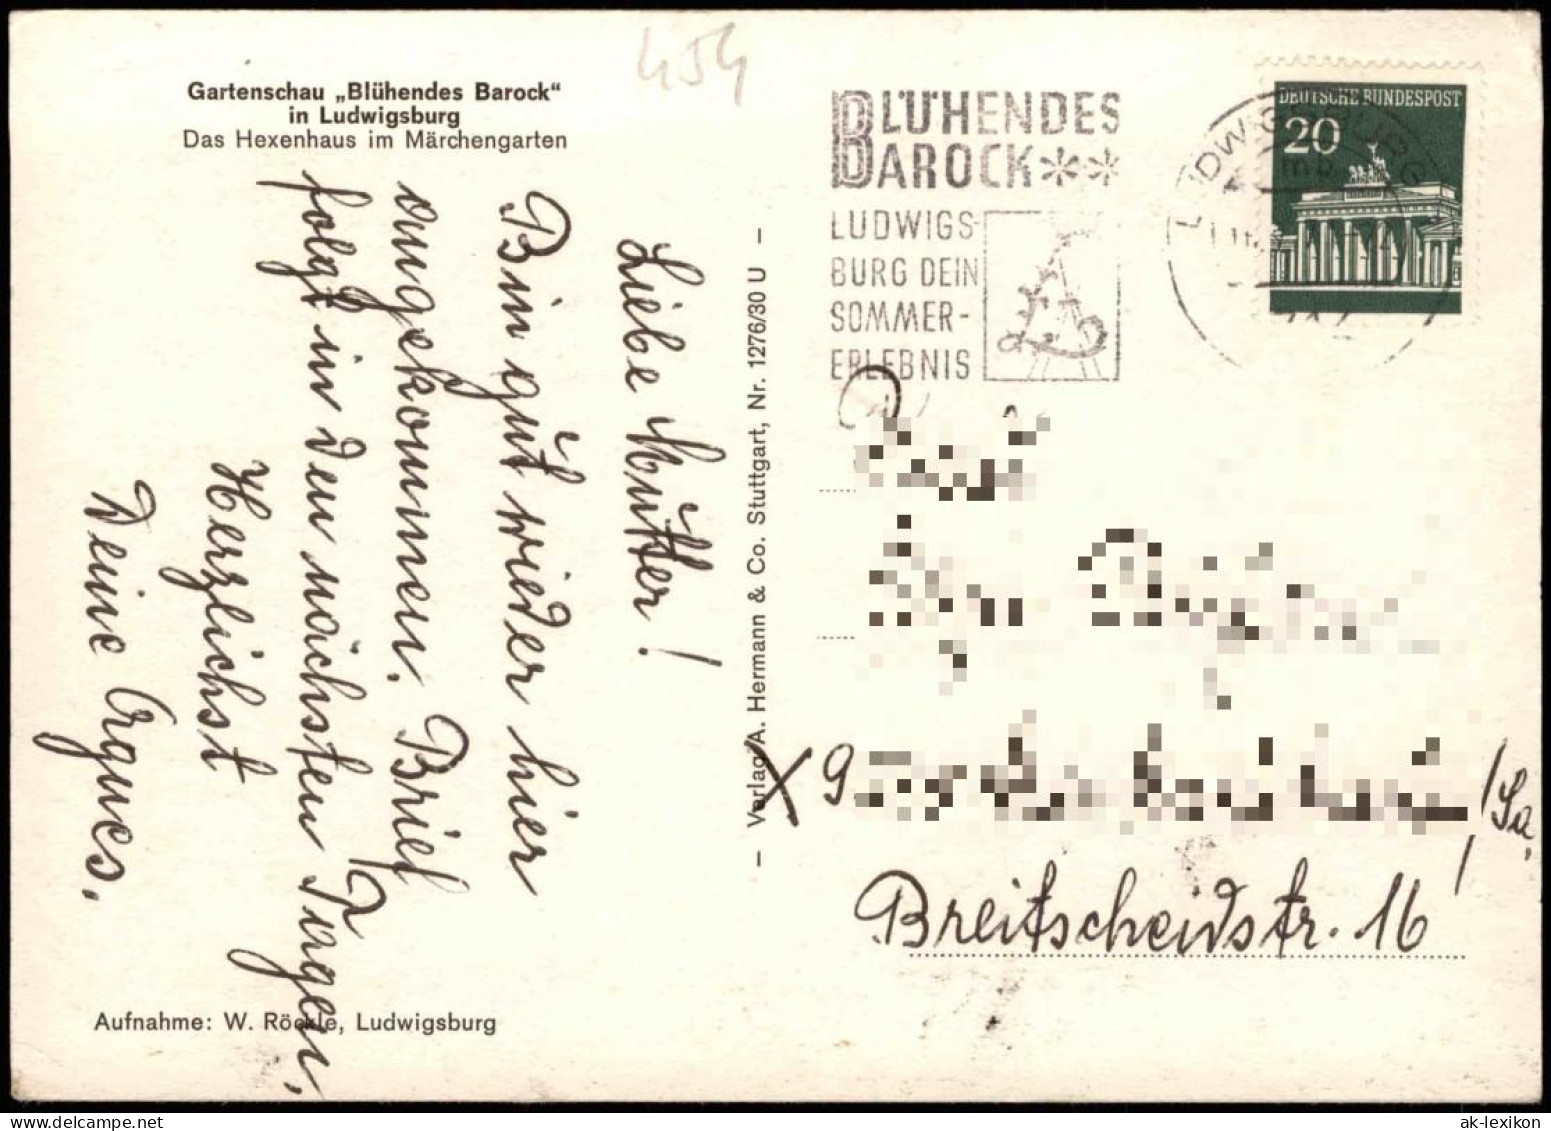 454
Gartenschau „Blühendes Barock“
in Ludwigsburg
Das Hexenhaus im Märchengarten
Liebe Mutter!
Bin gut wieder hier
angekommen. Brief
folgt in den nächsten Tagen.
Herzlichst
Deine Agnes.
Aufnahme: W. Röckle, Ludwigsburg
— Verlag A. Hermann & Co. Stuttgart, Nr. 1276/30 U —
BLÜHENDES
BAROCK**
LUDWIGS-
BURG DEIN
SOMMER-
ERLEBNIS
LUDWIGSBURG
DEUTSCHE BUNDESPOST
20
X 9
/Sa.
Breitscheidstr. 16
ak-lexikon